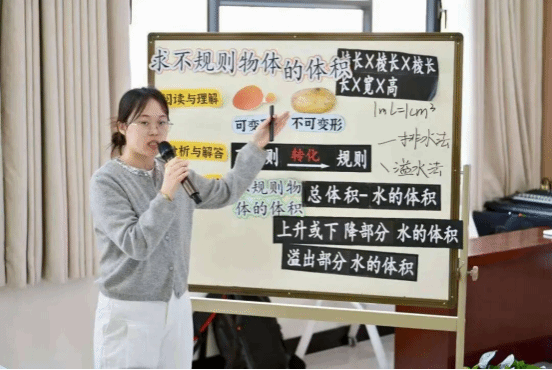 求不规则物体的体积
棱长×棱长×棱长
长×宽×高
阅读与理解
可变形
不可变形
1mL=1cm³
排水法
溢水法
析与解答
则 转化 规则
不规则物
体的体积
总体积-水的体积
上升或下降部分 水的体积
溢出部分 水的体积